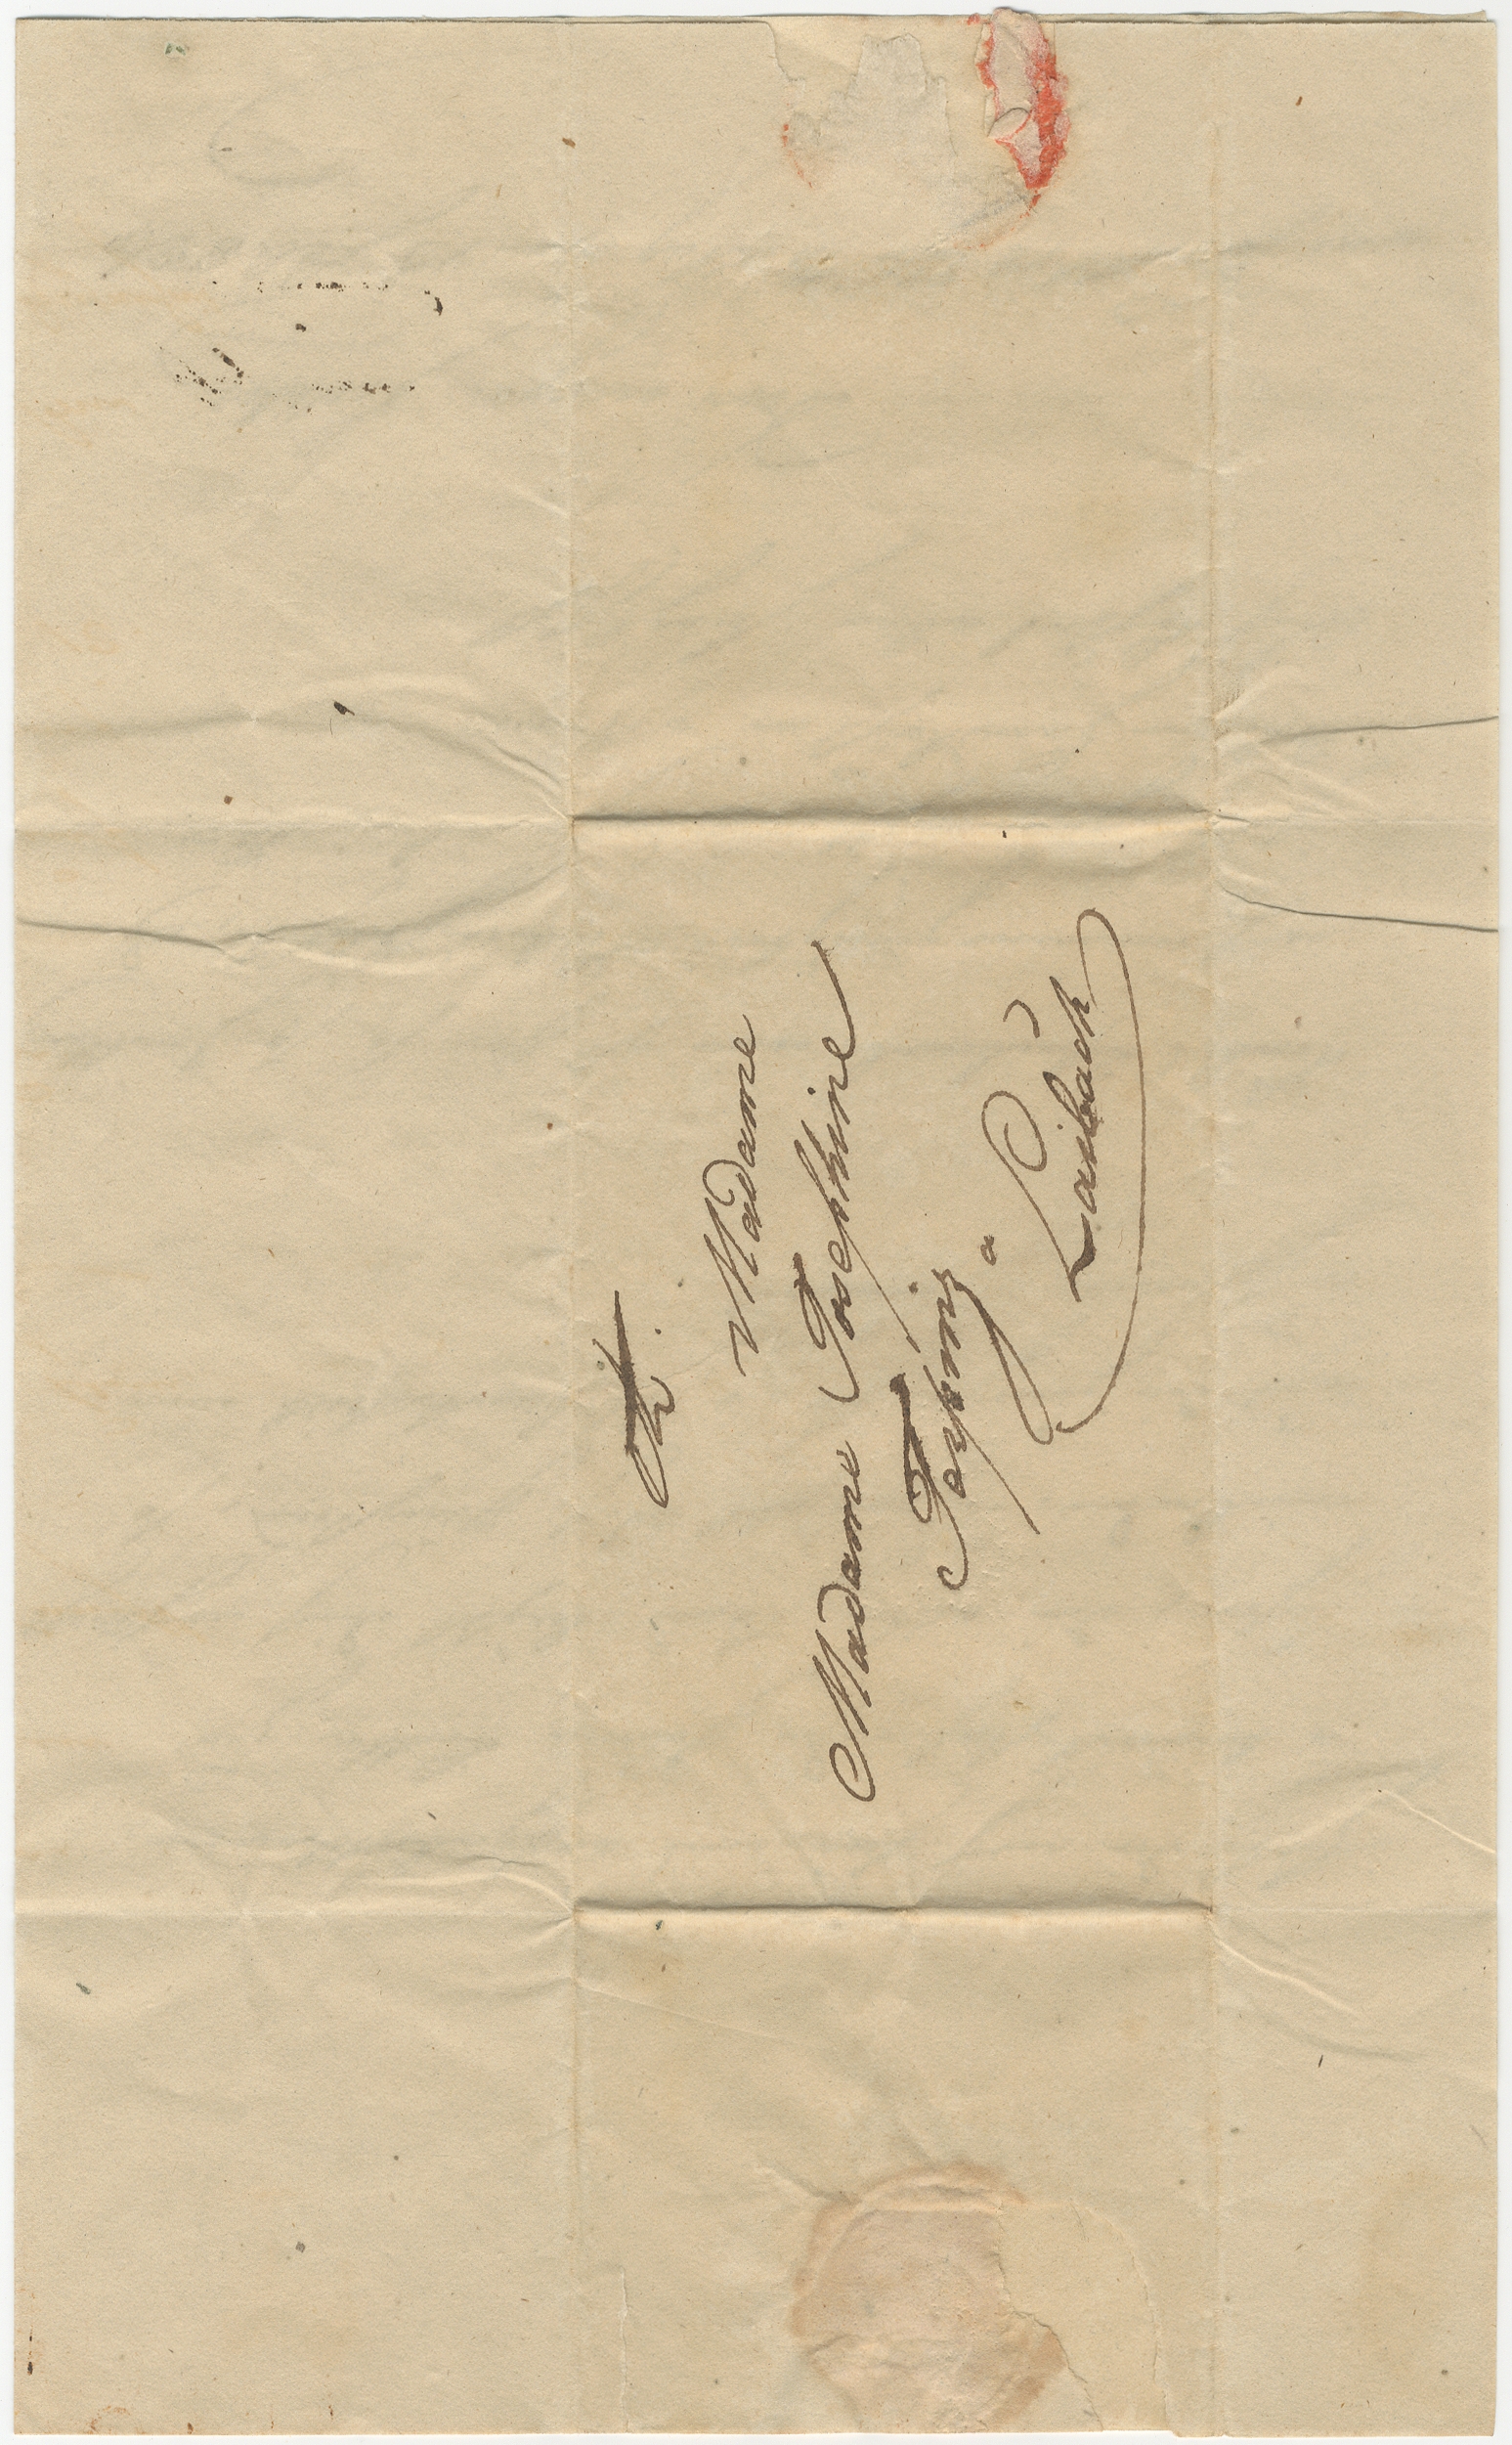 A
Madame
Madame Josephine
Terpinz
a
Laibach